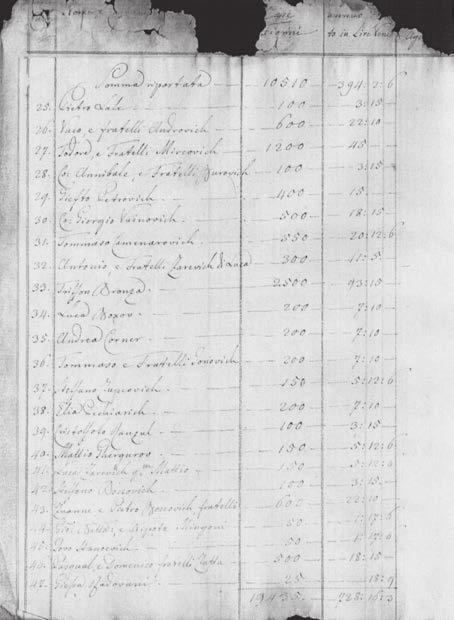 annuo
to in Lire Vene
Somma riportata 10510 394:2:6
25. Pietro Lale 100 3:15
26. Vuco e fratelli Androvich 600 22:10
27. Todoro, e Fratelli Mircovich 1200 45
28. Co: Annibale, e Fratelli Burovich 100 3:15
29. Petrovich 400 15
30. Co: Giorgio Vainovich 500 18:15
31. Tommaso Camenarovich 550 20:12:6
32. Antonio, e Fratelli Zarevich di Luca 300 11:5
33. Triffon Bronza 2500 93:15
34. Luca Boxov 200 7:10
35. Andrea Corner 200 7:10
36. Tommaso e Fratelli Ionovich 200 7:10
37. Steffano 150 5:12:6
38. Elia 200 7:10
39. Cristofolo 100 3:15
40. Mattio Ghergurov 150 5:12:6
41. Luca Zarevich qm Mattio 150 5:12:6
42. Steffano Boscovich 100 3:15
43. Zuanne e Pietro Boscovich fratelli 600 22:10
44. Mingoni 50 1:17:6
45. Jovo Stancovich 50 1:17:6
46. Pasqual, e Domenico fratelli Zatta 500 18:15
47. Padovani 25 18:9
19435 728:16:3